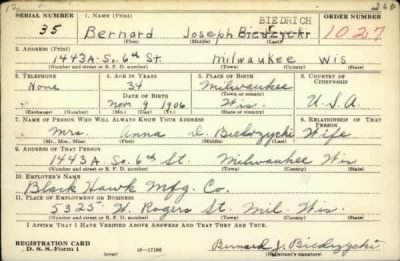 12 260
SERIAL NUMBER 1. NAME (Print) BIEDRICH ORDER NUMBER
35 Bernard Joseph Biedzycki 1027
(First) (Middle) (Last)
2. ADDRESS (Print)
1443A-So. 6th St. Milwaukee Wis
(Number and street or R. F. D. number) (Town) (County) (State)
3. TELEPHONE 4. AGE IN YEARS 5. PLACE OF BIRTH 6. COUNTRY OF CITIZENSHIP
None 34 Milwaukee
DATE OF BIRTH (Town or county)
Nov 9 1906 Wis. U.S.A.
(Exchange) (Number) (Mo.) (Day) (Yr.) (State or country)
7. NAME OF PERSON WHO WILL ALWAYS KNOW YOUR ADDRESS 8. RELATIONSHIP OF THAT PERSON
Mrs. Anna Biedrzycki Wife
(Mr., Mrs., Miss) (First) (Middle) (Last)
9. ADDRESS OF THAT PERSON
1443A So. 6th St. Milwaukee Wis
(Number and street or R. F. D. number) (Town) (County) (State)
10. EMPLOYER'S NAME
Black Hawk Mfg. Co.
11. PLACE OF EMPLOYMENT OR BUSINESS
5325 W. Rogers St. Mil. Wis.
(Number and street or R. F. D. number) (Town) (County) (State)
I AFFIRM THAT I HAVE VERIFIED ABOVE ANSWERS AND THAT THEY ARE TRUE.
REGISTRATION CARD
D. S. S. Form 1 16—17105 Bernard J. Biedrzycki
(Registrant's signature)